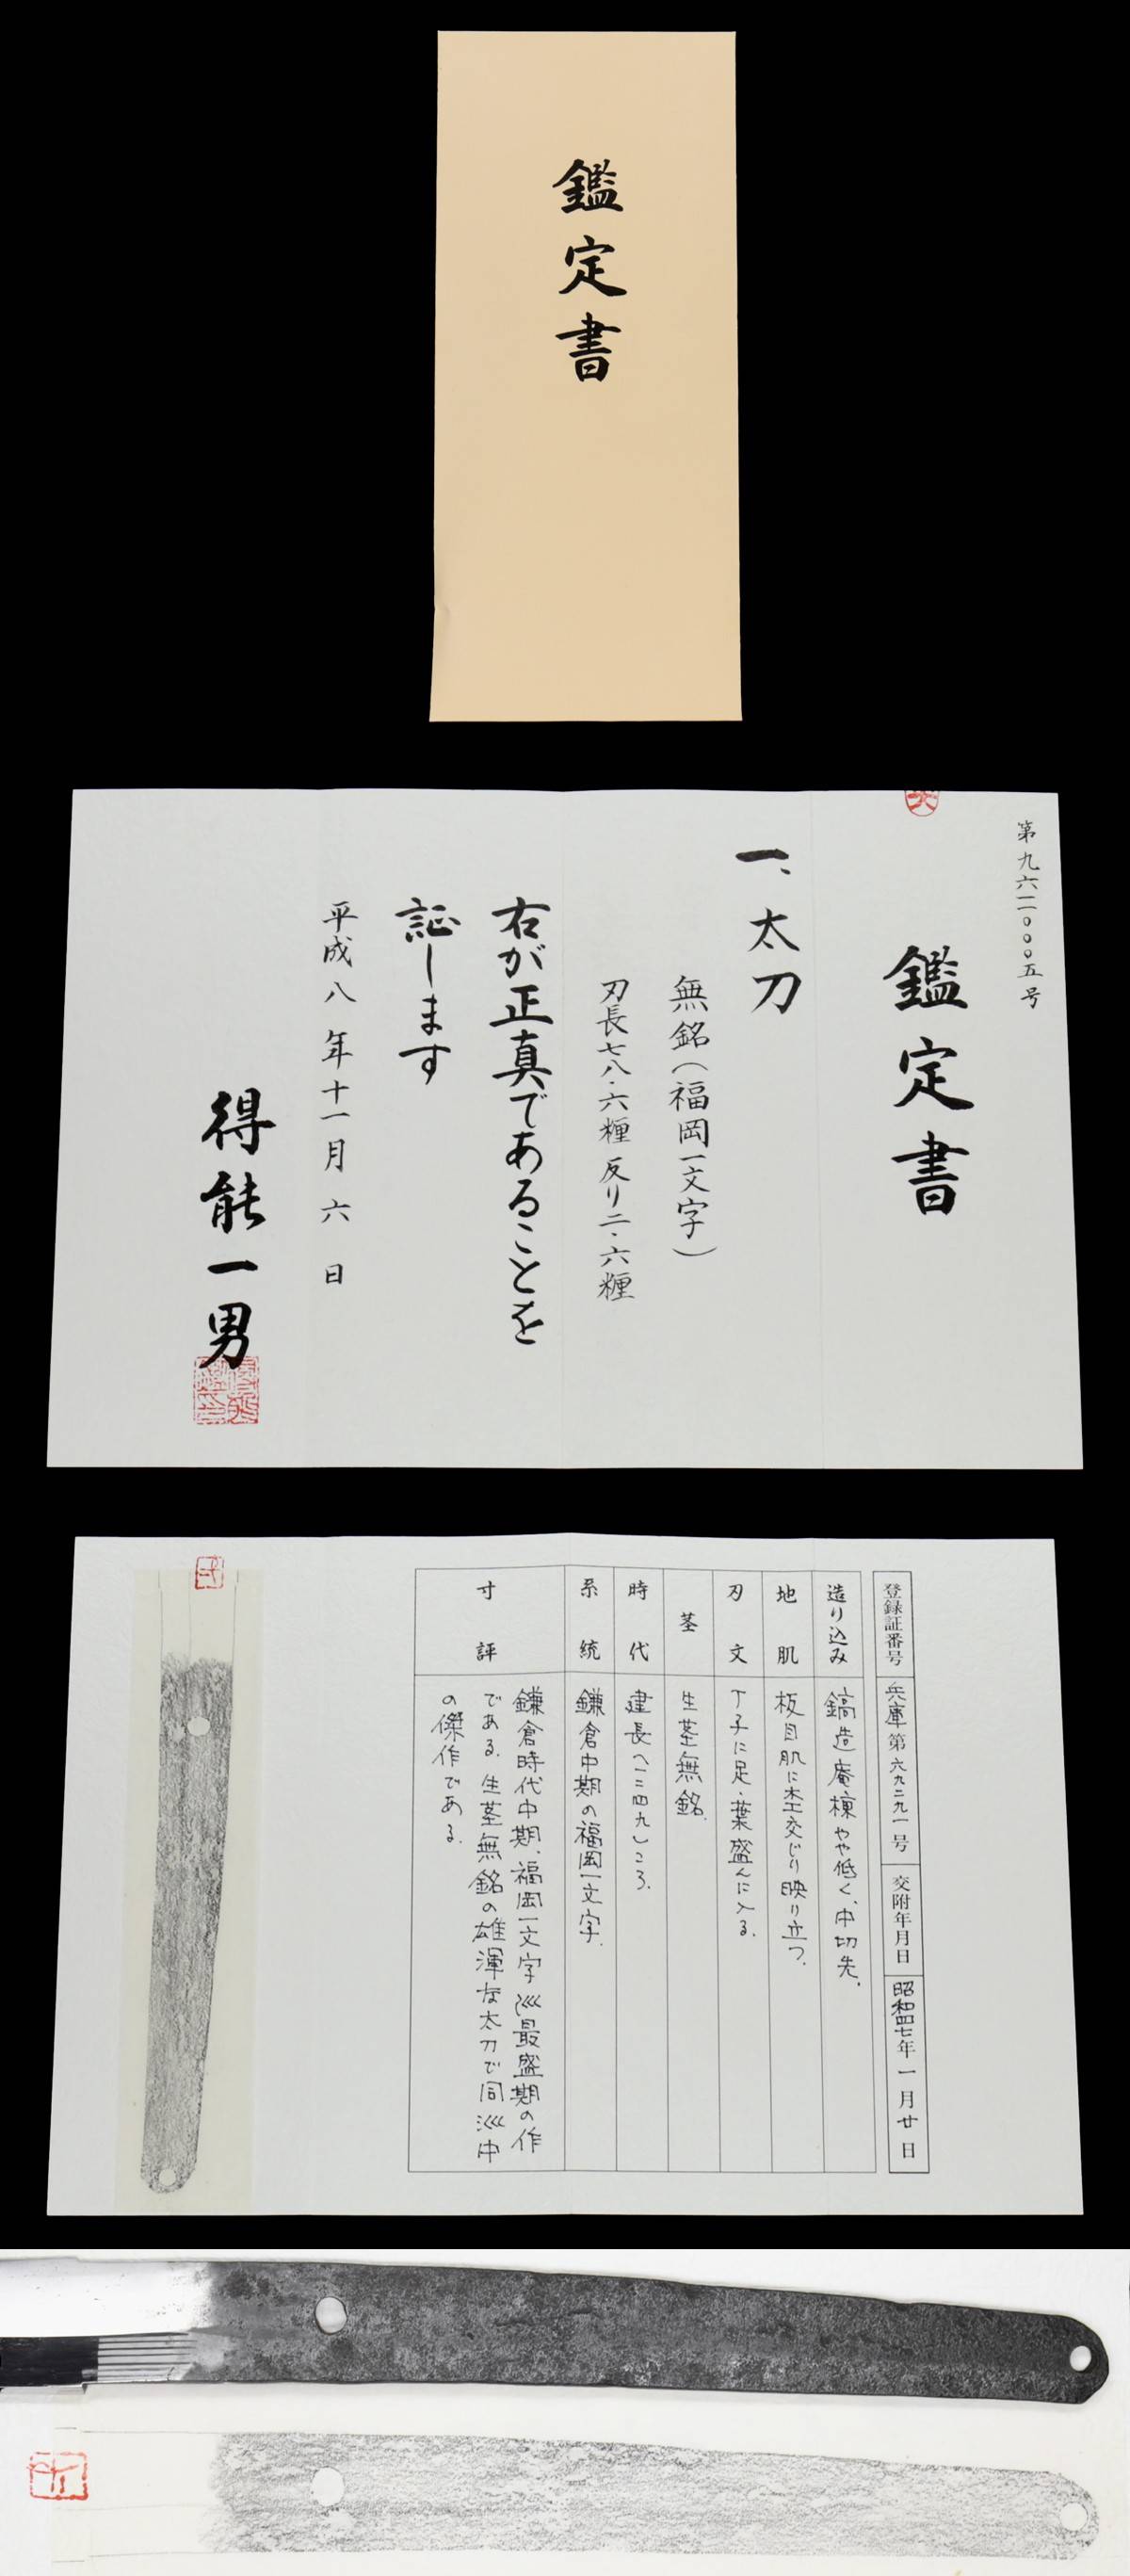 鑑定書
第九六一一〇〇〇五号
鑑定書
一、太刀
無銘(福岡一文字)
刃長七八・六糎 反り二・六糎
右が正真であることを
証します
平成八年十一月六日
得能一男
登録証番号 兵庫第六九二九一号 交附年月日 昭和四七年一月廿日
造り込み 鎬造庵棟やや低く、中切先。
地肌 板目肌に杢交じり映り立つ。
刃文 丁子に足・葉盛んに入る。
茎 生茎無銘。
時代 建長(一二四九)ころ。
系統 鎌倉中期の福岡一文字。
寸評 鎌倉時代中期、福岡一文字派最盛期の作
である。生茎無銘の雄渾な太刀で同派中
の傑作である。